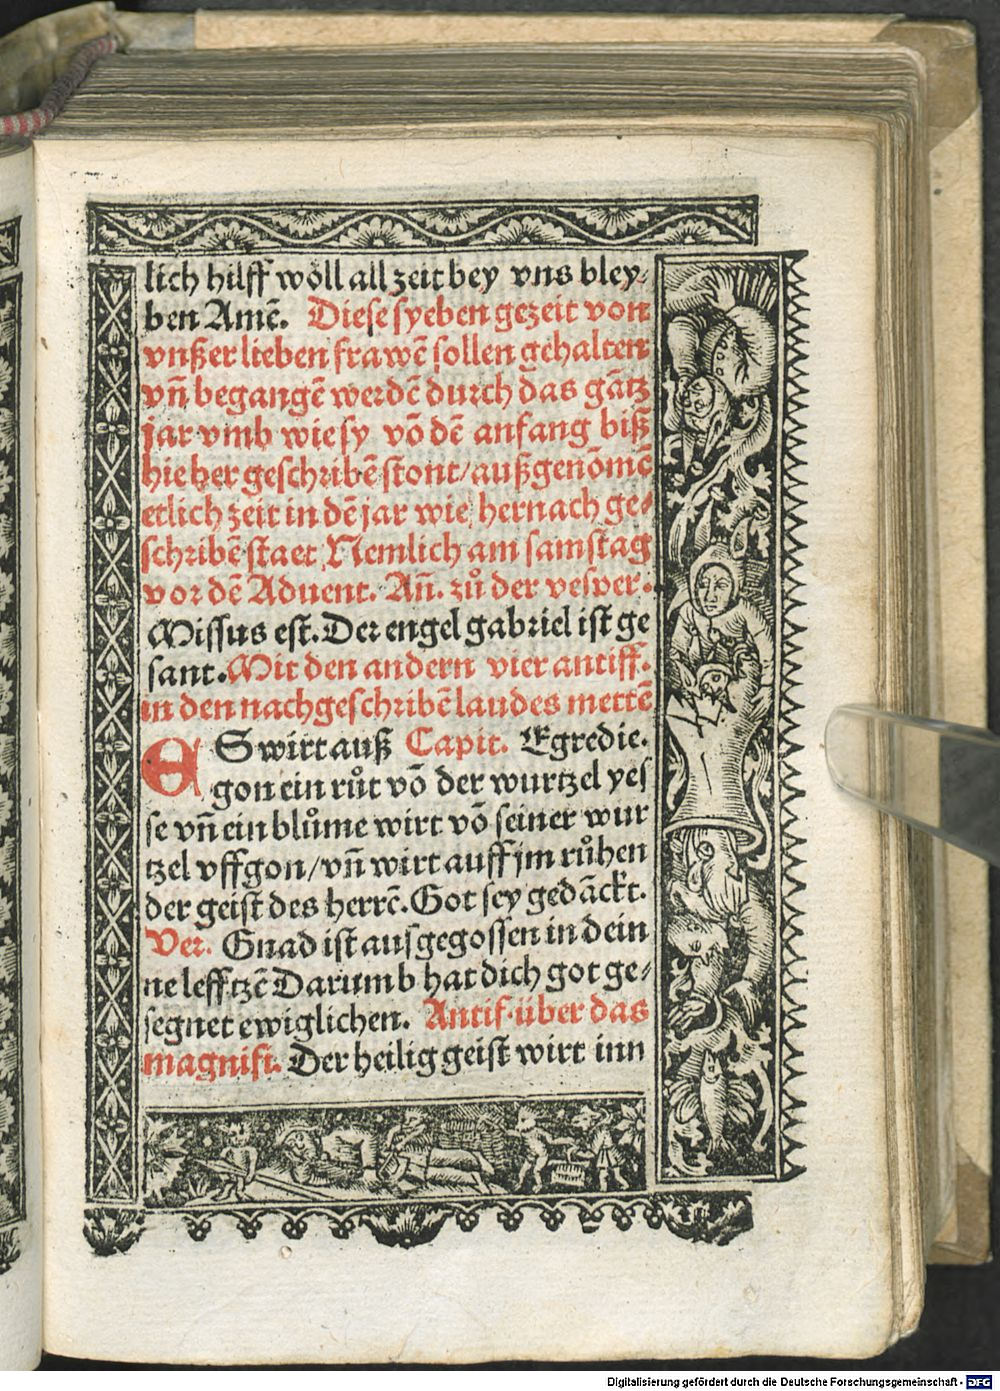 lich hilff wöll all zeit bey vns bley⸗
ben Amē. Diese syeben gezeit von
vnßer lieben frawē sollen gehalten
vn̄ begangē werdē durch das gātz
jar vmb wie sy vō dē anfang biß
hie her geschribē stont/außgenōmē
etlich zeit in dē jar wie hernach ge⸗
schribē staet Nemlich am samstag
vor dē Aduent. An̄. zů der vesper.
Missus est. Der engel gabriel ist ge
sant. Mit den andern vier antiff.
in den nachgeschribē laudes mettē
ES wirt auß Capit. Egredie.
gon ein růt vō der wurtzel yes
se vn̄ ein blůme wirt vō seiner wur
tzel vffgon/vn̄ wirt auff jm růhen
der geist des herrē. Got sey gedāckt.
Ver. Gnad ist ausgegossen in dein
ne lefftzē Darumb hat dich got ge⸗
segnet ewiglichen. Antif. über das
magnifi. Der heilig geist wirt inn
Digitalisierung gefördert durch die Deutsche Forschungsgemeinschaft - DFG